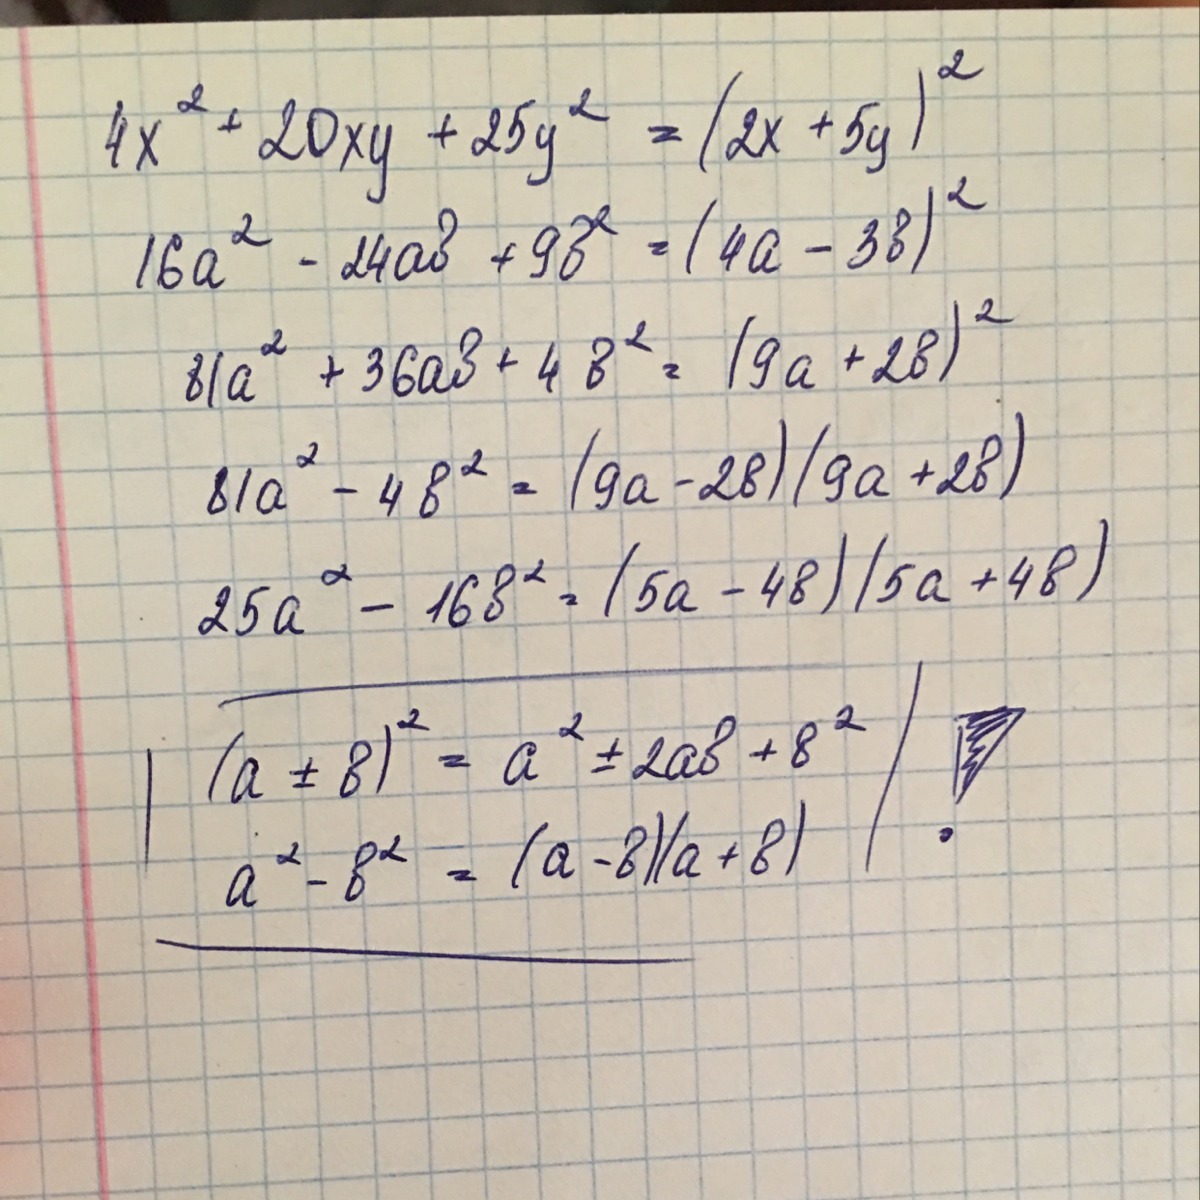 4x² + 20xy + 25y² = (2x + 5y)²
16a² - 24ab + 9b² = (4a - 3b)²
81a² + 36ab + 4b² = (9a + 2b)²
81a² - 4b² = (9a - 2b)(9a + 2b)
25a² - 16b² = (5a - 4b)(5a + 4b)
(a ± b)² = a² ± 2ab + b² !
a² - b² = (a - b)(a + b)